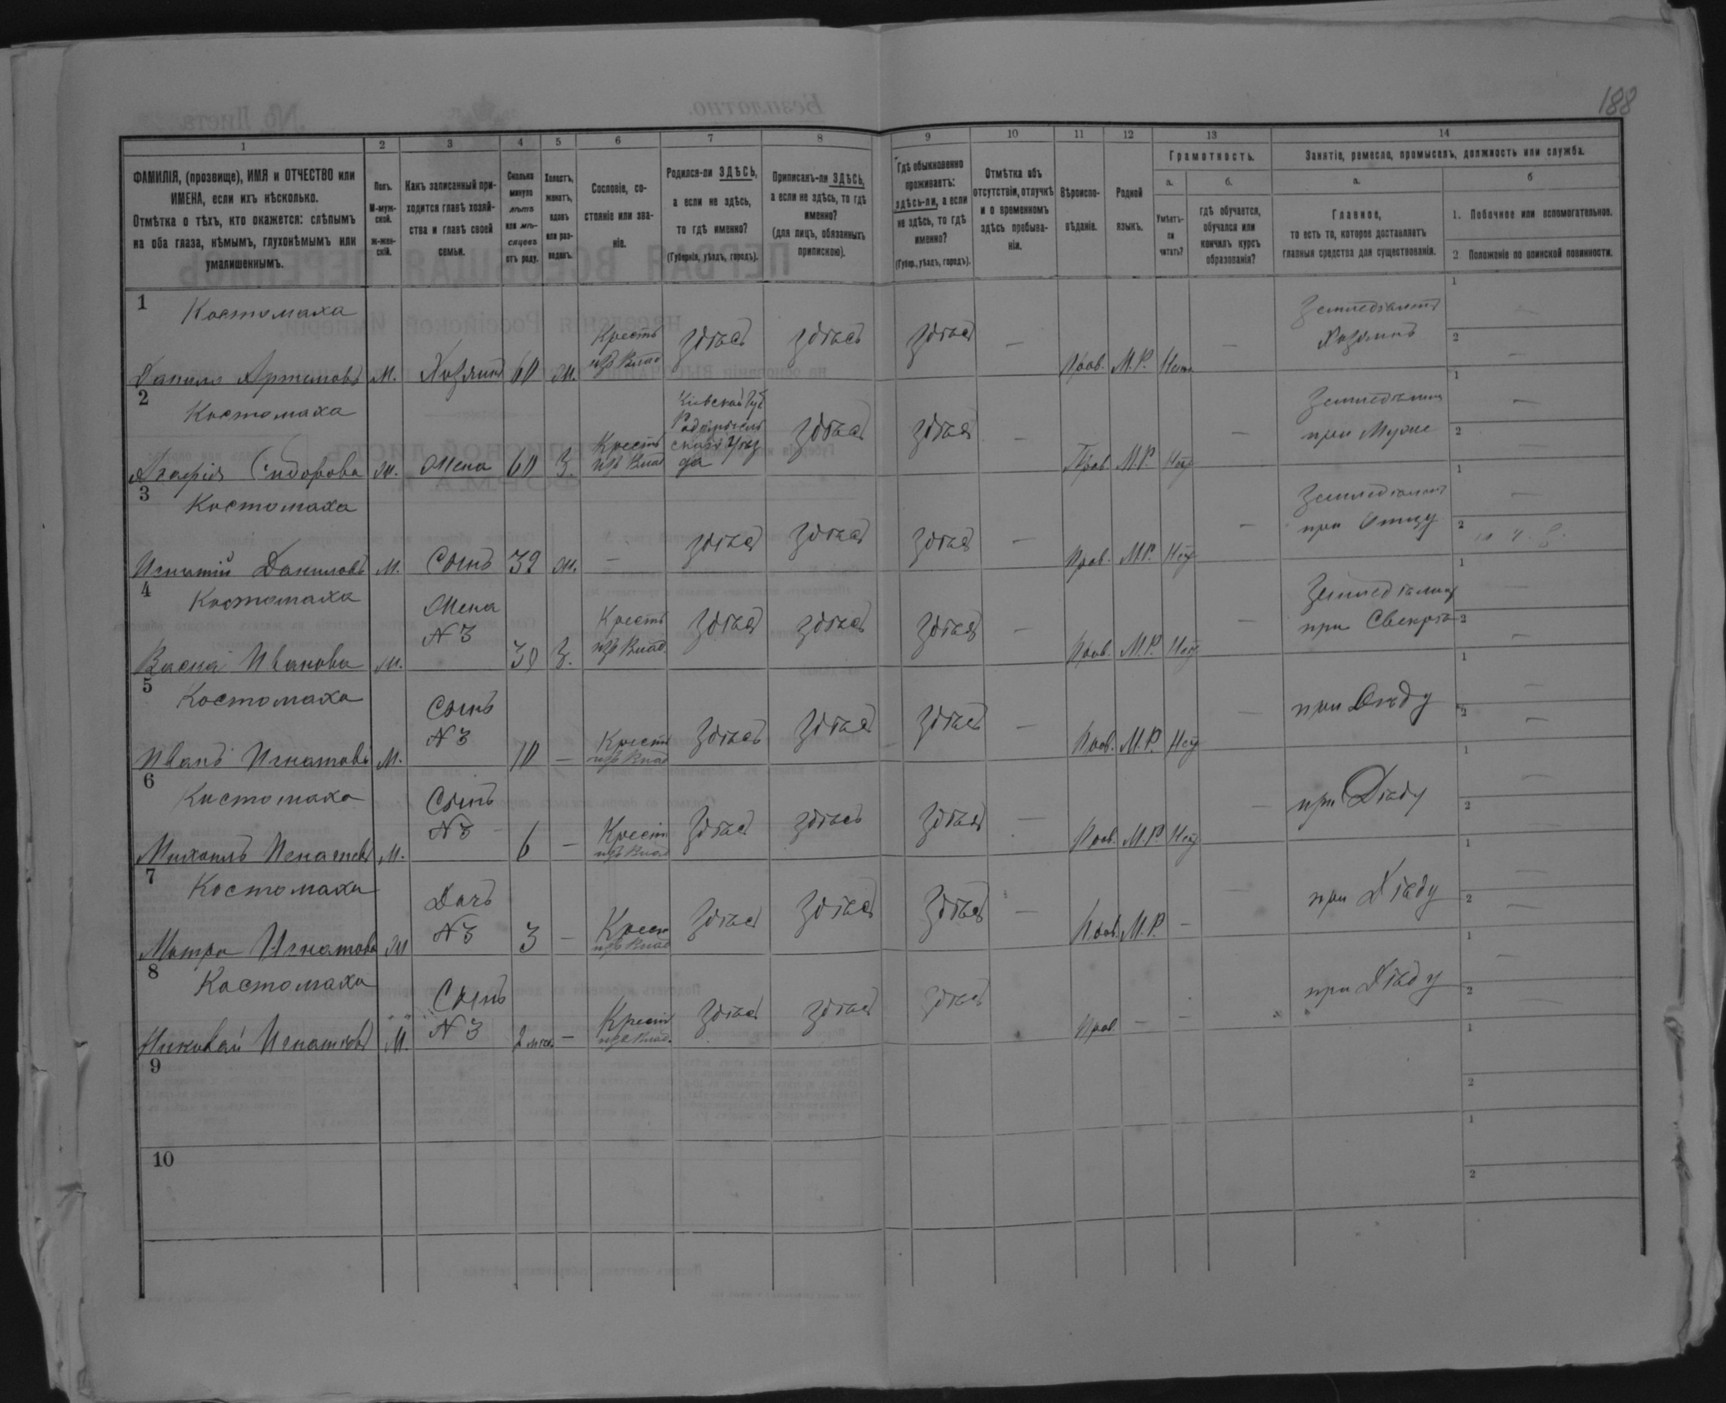 188
1 2 3 4 5 6 7 8 9 10 11 12 13 14
ФАМИЛІЯ, (прозвище), ИМЯ и ОТЧЕСТВО или
ИМЕНА, если ихъ нѣсколько.
Отмѣтка о тѣхъ, кто окажется: слѣпымъ
на оба глаза, нѣмымъ, глухонѣмымъ или
умалишеннымъ.
Полъ.
М-муж-
ской.
ж-жен-
скій.
Какъ записанный при-
ходится главѣ хозяй-
ства и главѣ своей
семьи.
Сколько
минуло
лѣтъ
или мѣ-
сяцевъ
отъ роду.
Холостъ,
женатъ,
вдовъ
или раз-
веденъ.
Сословіе, со-
стояніе или зва-
ніе.
Родился-ли ЗДѢСЬ,
а если не здѣсь,
то гдѣ именно?
(Губернія, уѣздъ, городъ).
Приписанъ-ли ЗДѢСЬ,
а если не здѣсь, то гдѣ
именно?
(для лицъ, обязанныхъ
припискою).
Гдѣ обыкновенно
проживаетъ:
здѣсь-ли, а если
не здѣсь, то гдѣ
именно?
(Губер., уѣздъ, городъ).
Отмѣтка объ
отсутствіи, отлучкѣ
и о временномъ
здѣсь пребыва-
ніи.
Вѣроиспо-
вѣданіе.
Родной
языкъ.
Грамотность.
а.
Умѣетъ-
ли
читать?
б.
гдѣ обучается,
обучался или
кончилъ курсъ
образованія?
Занятіе, ремесло, промыселъ, должность или служба.
а.
Главное,
то есть то, которое доставляетъ
главныя средства для существованія.
б
1. Побочное или вспомогательное.
2 Положеніе по воинской повинности.
1 Костомаха
Данилъ Артемовъ М. Хозяинъ 60 ж. Крестъ изъ Влад здѣсь здѣсь здѣсь — Прав. М.Р. Нетъ — Земледѣлецъ Хозяинъ 1 — 2 —
2 Костомаха
Агафія Сидорова ж. Жена 60 З. Крестъ изъ Влад Кіевской Губ Радомысльскаго Уѣзда здѣсь здѣсь — Прав. М.Р. Нет — Земледѣлец при Муже 1 — 2
3 Костомаха
Игнатій Даниловъ М. Сынъ 32 ж. — здѣсь здѣсь здѣсь — Прав. М.Р. Нет — Земледѣлецъ при Отцу 1 — 2
4 Костомаха
Ивановна ж. Жена N 3 30 З. Крестъ изъ Влад здѣсь здѣсь здѣсь — Прав. М.Р. Нет — Земледѣлец при Свекрѣ 1 — 2 —
5 Костомаха
Иванъ Игнатовъ М. Сынъ N 3 10 — Крестъ изъ Влад здѣсь здѣсь здѣсь — Прав. М.Р. Нет — при Дѣду 1 — 2 —
6 Костомаха
Михаилъ Игнатовъ М. Сынъ N 3 6 — Крестъ изъ Влад здѣсь здѣсь здѣсь — Прав. М.Р. Нет — при Дѣду 1 — 2
7 Костомаха
Мотря Игнатова ж Дочь N 3 3 — Крест изъ Влад здѣсь здѣсь здѣсь — Прав. М.Р. — — при Дѣду 1 — 2 —
8 Костомаха
Николай Игнатовъ М. Сынъ N 3 2 мѣс. — Крестъ изъ Влад. здѣсь здѣсь здѣсь Прав — — при Дѣду 1 — 2 —
9 1 2
10 1 2